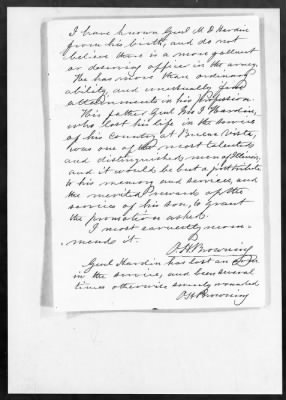 I have known Genl M D Hardin
from his birth, and do not
believe there is a more gallant
or deserving officer in the army.
He has more than ordinary
ability, and unusually fine
attainments in his profession.
His father Genl Jno J Hardin,
who lost his life in the service
of his Country at Buena Vista,
was one of the most talented
and distinguished men of Illinois,
and it would be but a just tribute
to his memory and services, and
the merited reward of the
service of his son, to grant
the promotion asked.
I most earnestly recom-
mend it.
O. H. Browning
Genl Hardin has lost an
in the service, and been several
times otherwise severely wounded
O H Browning